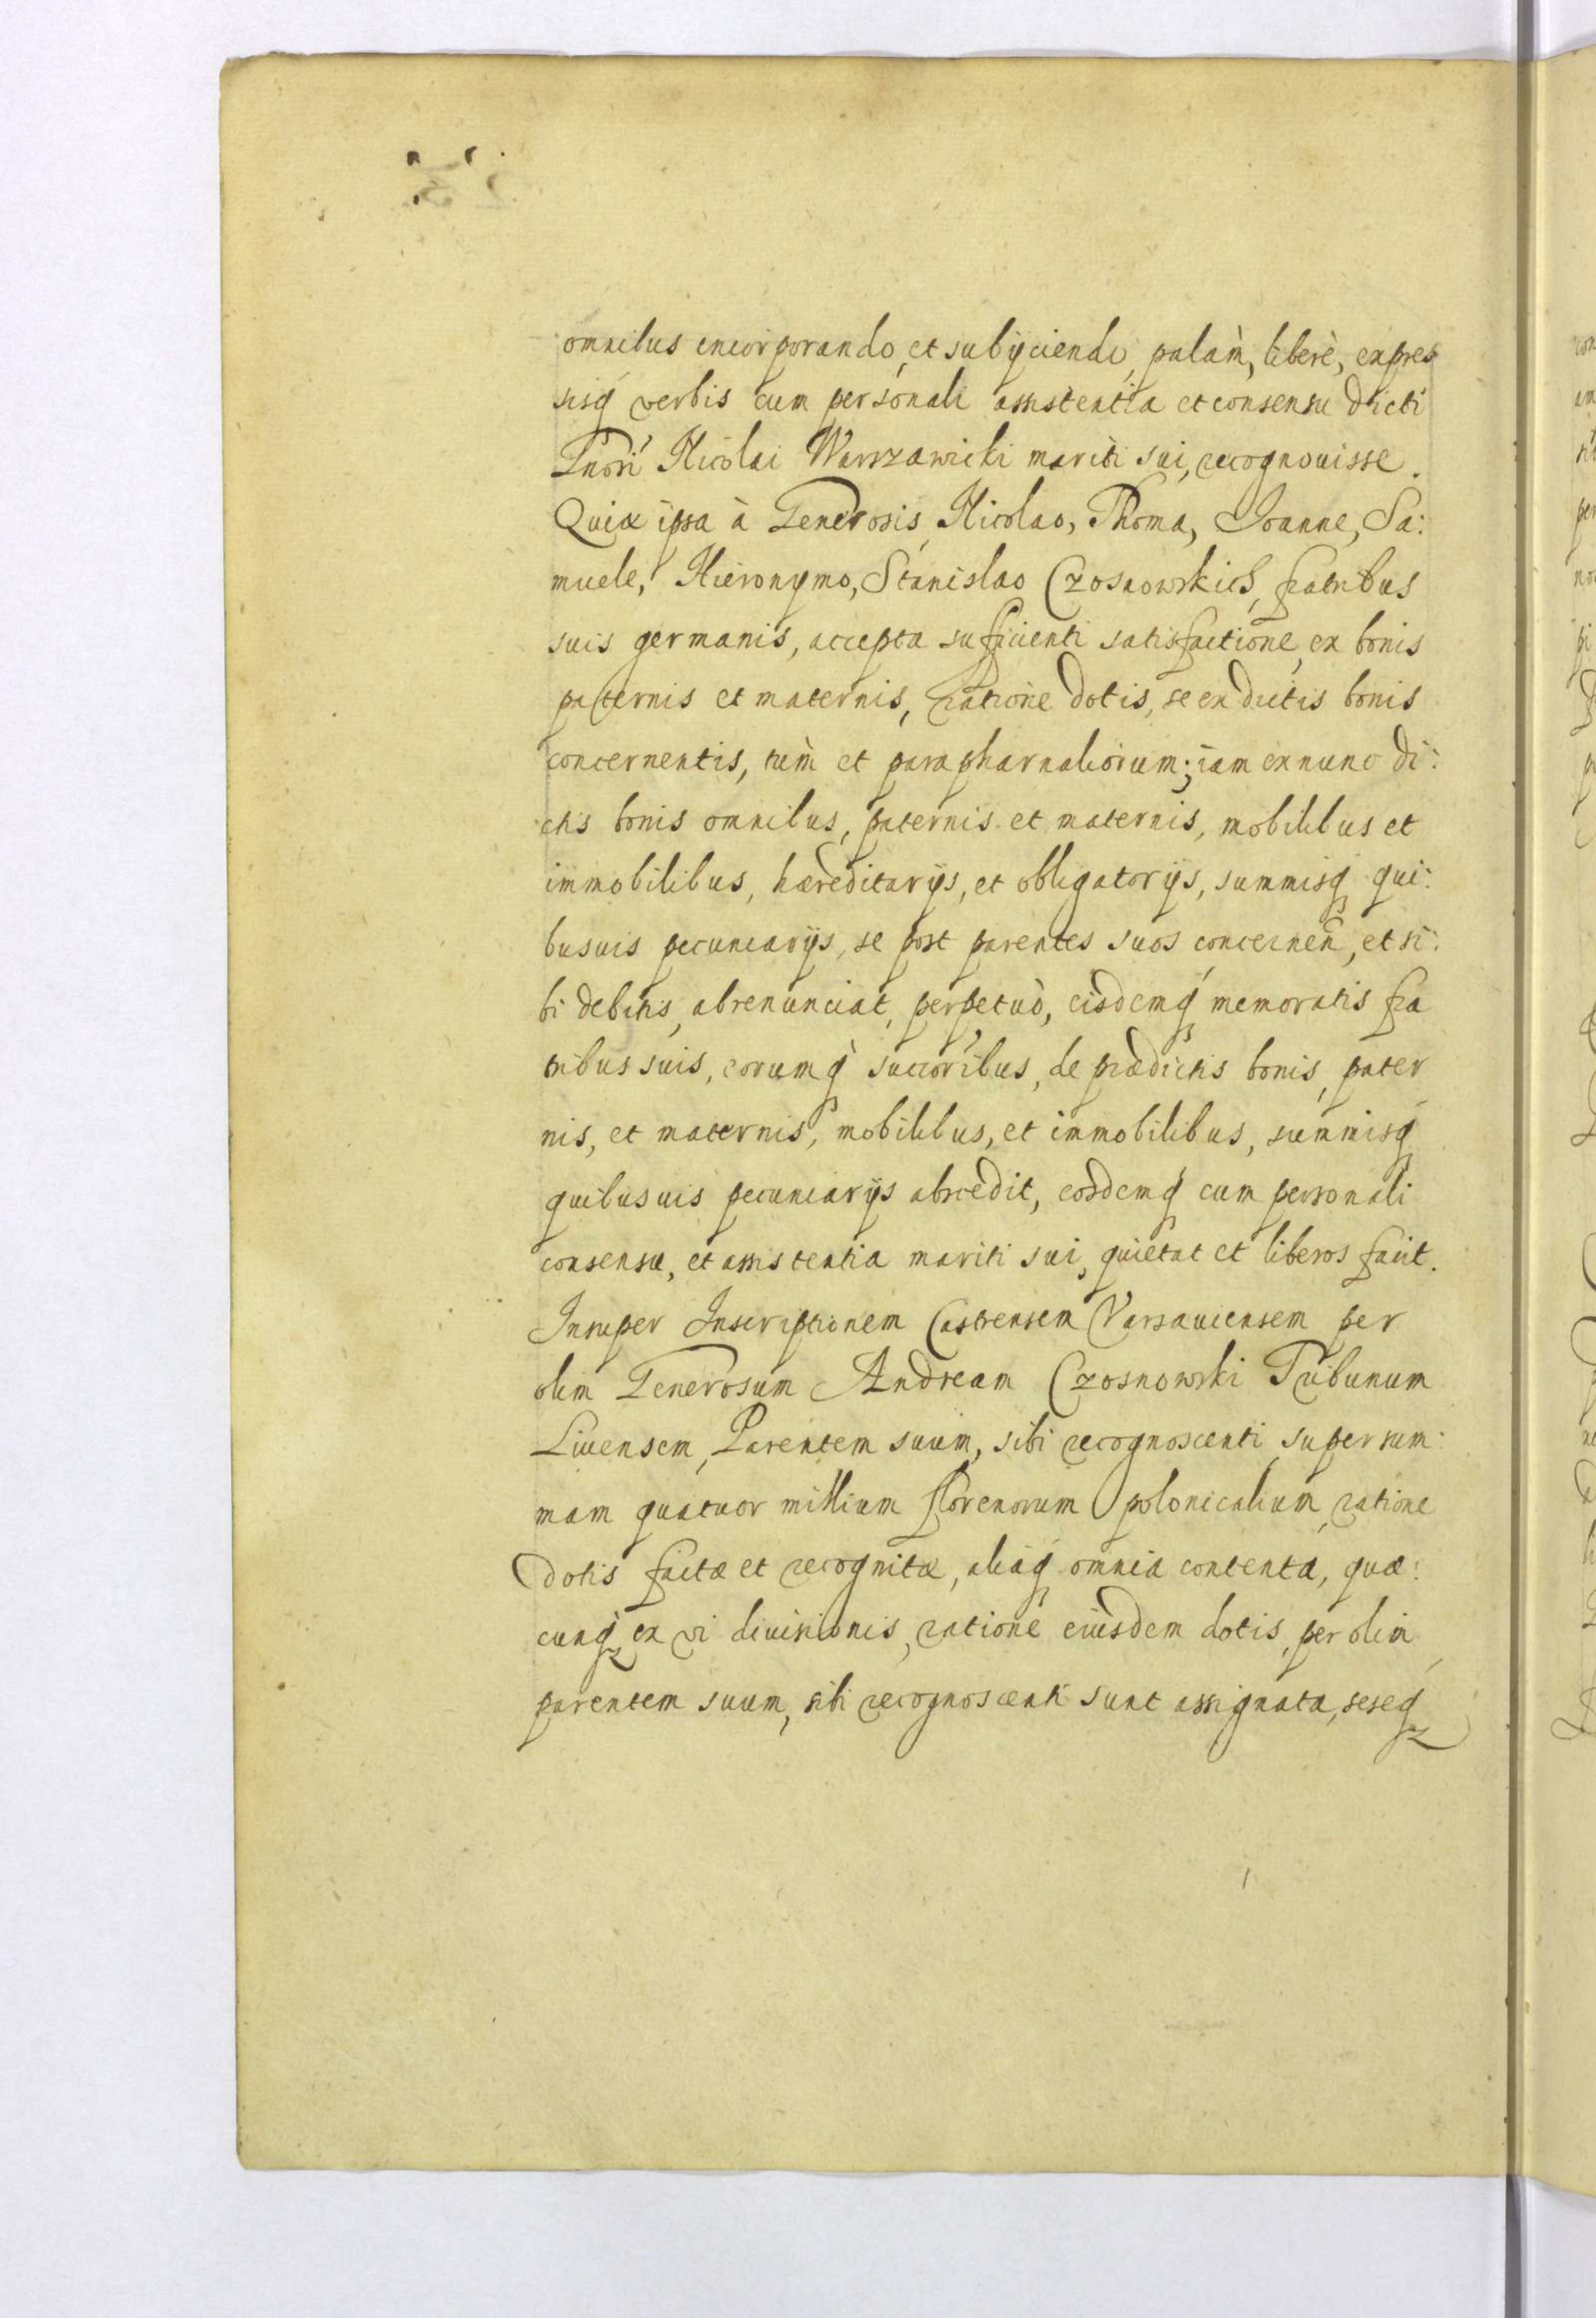 omnibus incorporando, et subÿciendo, palàm, liberè, expres
sisq́ verbis cum personali assistentia et consensu dicti
Gnosi Nicolai Warszawicki mariti sui, recognouisse.
Quia ipsa à Generosis, Nicolao, Thoma, Joanne, Sa:
muele, Hieronymo, Stanislao Czosnowskich, fratribus
suis germanis, accepta sufficienti satisfactione, ex bonis
paternis et maternis, ratione dotis, se ex dictis bonis
concernentis, tùm et parapharnaliorum; iam ex nunc di:
ctis bonis omnibus, paternis et maternis, mobilibus et
immobilibus, hæreditarÿs, et obligatorÿs, summisq́ qui:
busuis pecuniarÿs, se post parentes suos concernen̄, et si:
bi debitis, abrenunciat, perpetuò, eisdemq́ memoratis fra
tribus suis, eorumq́ succoribus, de prædictis bonis, pater
nis, et maternis, mobilibus, et immobilibus, summisq́
quibusuis pecuniarÿs abscedit, eosdemq́ cum personali
consensu, et assistentia mariti sui, quietat et liberos facit.
Insuper Inscriptionem Castrensem Varsauiensem per
olim Generosum Andream Czosnowski Tribunum
Liuensem, Parentem suum, sibi recognoscenti, super sum:
mam quatuor millium florenorum polonicalium, ratione
dotis factæ et recognitæ, aliaq́ omnia contenta, quæ:
cunq́ ex vi diuisionis, ratione eiusdem dotis, per olim
parentem suum, sibi recognoscenti sunt assignata, seseq́